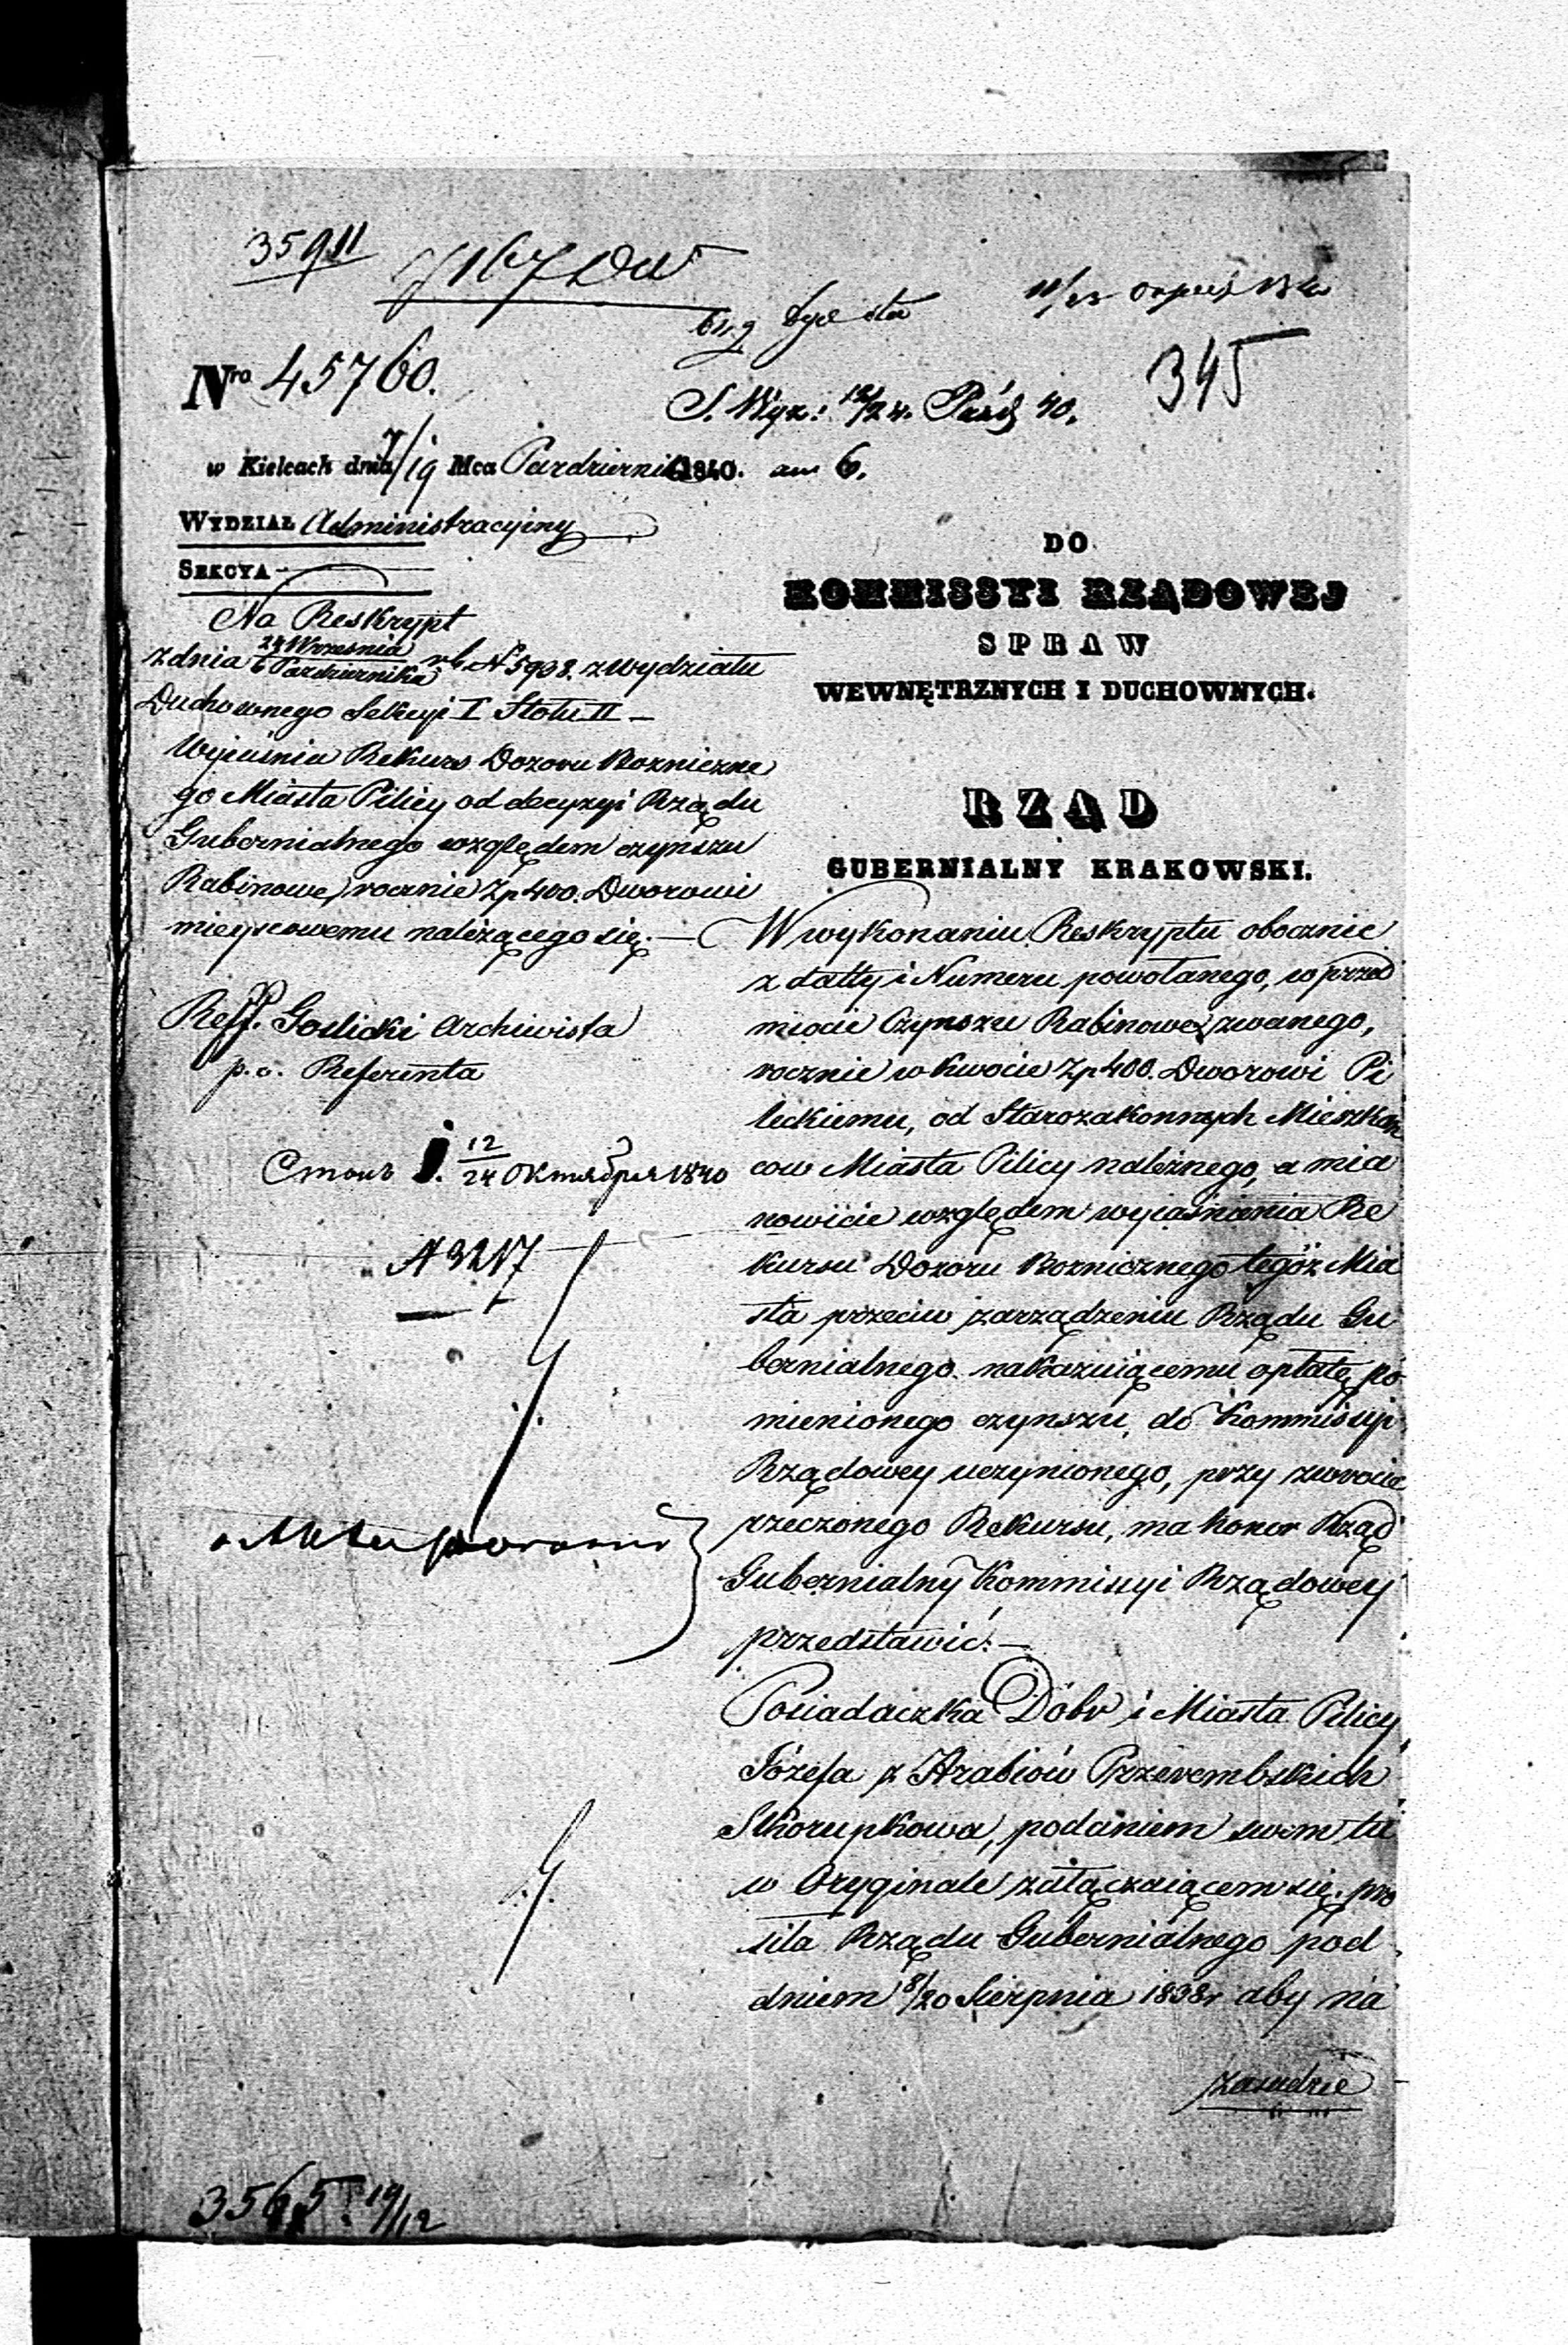 35911
7167 DW
345
Nro 45760.
S. Wyz: 12/24. Paźd 40.
w Kielcach dnia 7/19 Mca Pazdziernika 1840. am 6.
WYDZIAŁ Administracyjny
SEKCYA
Na Reskrypt
z dnia 24 Września / 6 Pazdziernika rb. N 5938. z Wydziału
Duchownego Sekcyi I Stołu II –
Wyjaśnia Rekurs Dozoru Bozniczne
go Miasta Pilicy od decyzyi Rządu
Gubernialnego względem czynszu
Rabinowe rocznie Zp 400. Dworowi
mieyscowemu należącego się. –
Reff. Goslicki Archiwista
p. o. Referenta
12/24 Октября 1840
N 3217
DO
KOMMISSYI RZĄDOWEJ
SPRAW
WEWNĘTRZNYCH I DUCHOWNYCH.
RZĄD
GUBERNIALNY KRAKOWSKI.
W wykonaniu Reskryptu obocznie
z datty i Numeru powołanego, w przed
miocie Czynszu Rabinowe zwanego,
rocznie w kwocie Zp 400. Dworowi Pi
leckiemu, od Starozakonnych Mieszkań
cow Miasta Pilicy należnego, a mia
nowicie względem wyjaśnienia Re
kursu Dozoru Bozniczego tegoż Mia
sta przeciw zarządzeniu Rządu Gu
bernialnego nakazuiącemu opłatę po
mienionego czynszu, do Kommissyi
Rządowey uczynionego, przy zwrocie
rzeczonego Rekursu, ma honor Rząd
Gubernialny Kommissyi Rządowey
przedstawić. –
Posiadaczka Dóbr i Miasta Pilicy
Józefa z Hrabiów Przerembskich
Skorupkowa, podaniem swem tu
w Oryginale załączaiącem się, pro
siła Rządu Gubernialnego pod
dniem 8/20 Sierpnia 1838r aby na
zasadzie
3565. 19/12